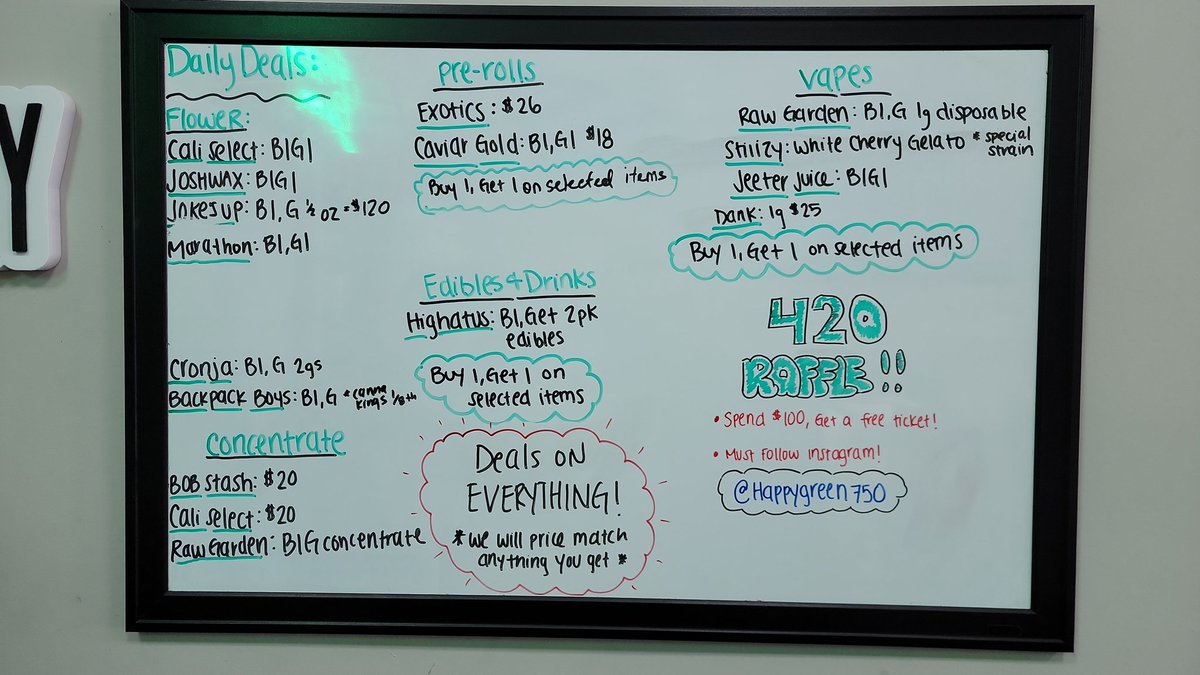 Y
Daily Deals:
Flower:
Cali Select: B1G1
JOSHWAX: B1G1
Jokesup: B1, G ½ oz = $120
Marathon: B1, G1
Cronja: B1, G 2gs
Backpack Boys: B1, G *canna
kings ⅛th
Concentrate
BOB Stash: $20
Cali Select: $20
Raw Garden: B1G concentrate
Pre-rolls
Exotics: $26
Caviar Gold: B1, G1 $18
Buy 1, Get 1 on selected items
Edibles & Drinks
Highatus: B1, Get 2pk
edibles
Buy 1, Get 1 on
selected items
Deals on
EVERYTHING!
*We will price match
anything you get *
Vapes
Raw Garden: B1, G 1g disposable
Stiiizy: White Cherry Gelato *special
strain
Jeeter Juice: B1G1
Dank: 1g $25
Buy 1, Get 1 on selected items
420
RAFFLE!!
• Spend $100, Get a free ticket!
• Must Follow instagram!
@Happygreen750